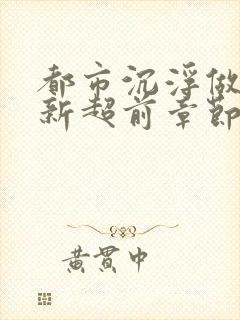 都市沉浮做
新超前章節
黃貫中